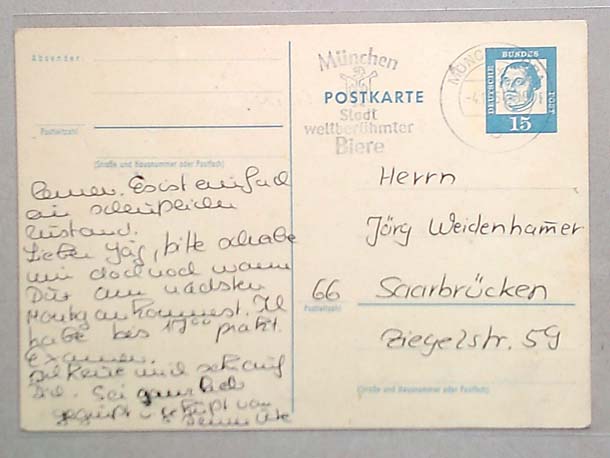 Absender:
Postleitzahl
(Straße und Hausnummer oder Postfach)
München
Stadt
weltberühmter
Biere
POSTKARTE
MÜNC
DEUTSCHE BUNDES POST
15
Herrn
Jörg Weidenham̅er
66 Saarbrücken
Postleitzahl
Ziegelstr. 59
(Straße und Hausnummer oder Postfach)
Es ist einfach
ein scheußlicher
Zustand.
Lieber Jörg, bitte schreibe
mir doch noch wann
Du am nächsten
Montag ankommst. Ich
habe bis 17⁰⁰ prakt.
Examen.
mich sehr auf
Dich. Sei ganz lieb
gegrüßt u. geküßt von
Deiner Ute